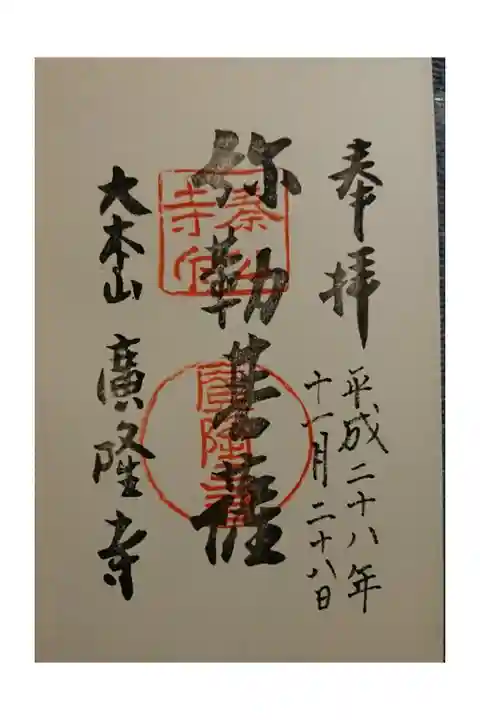 奉拝
平成二十八年
十一月二十八日
弥勒菩薩
廣隆寺
大本山 廣隆寺